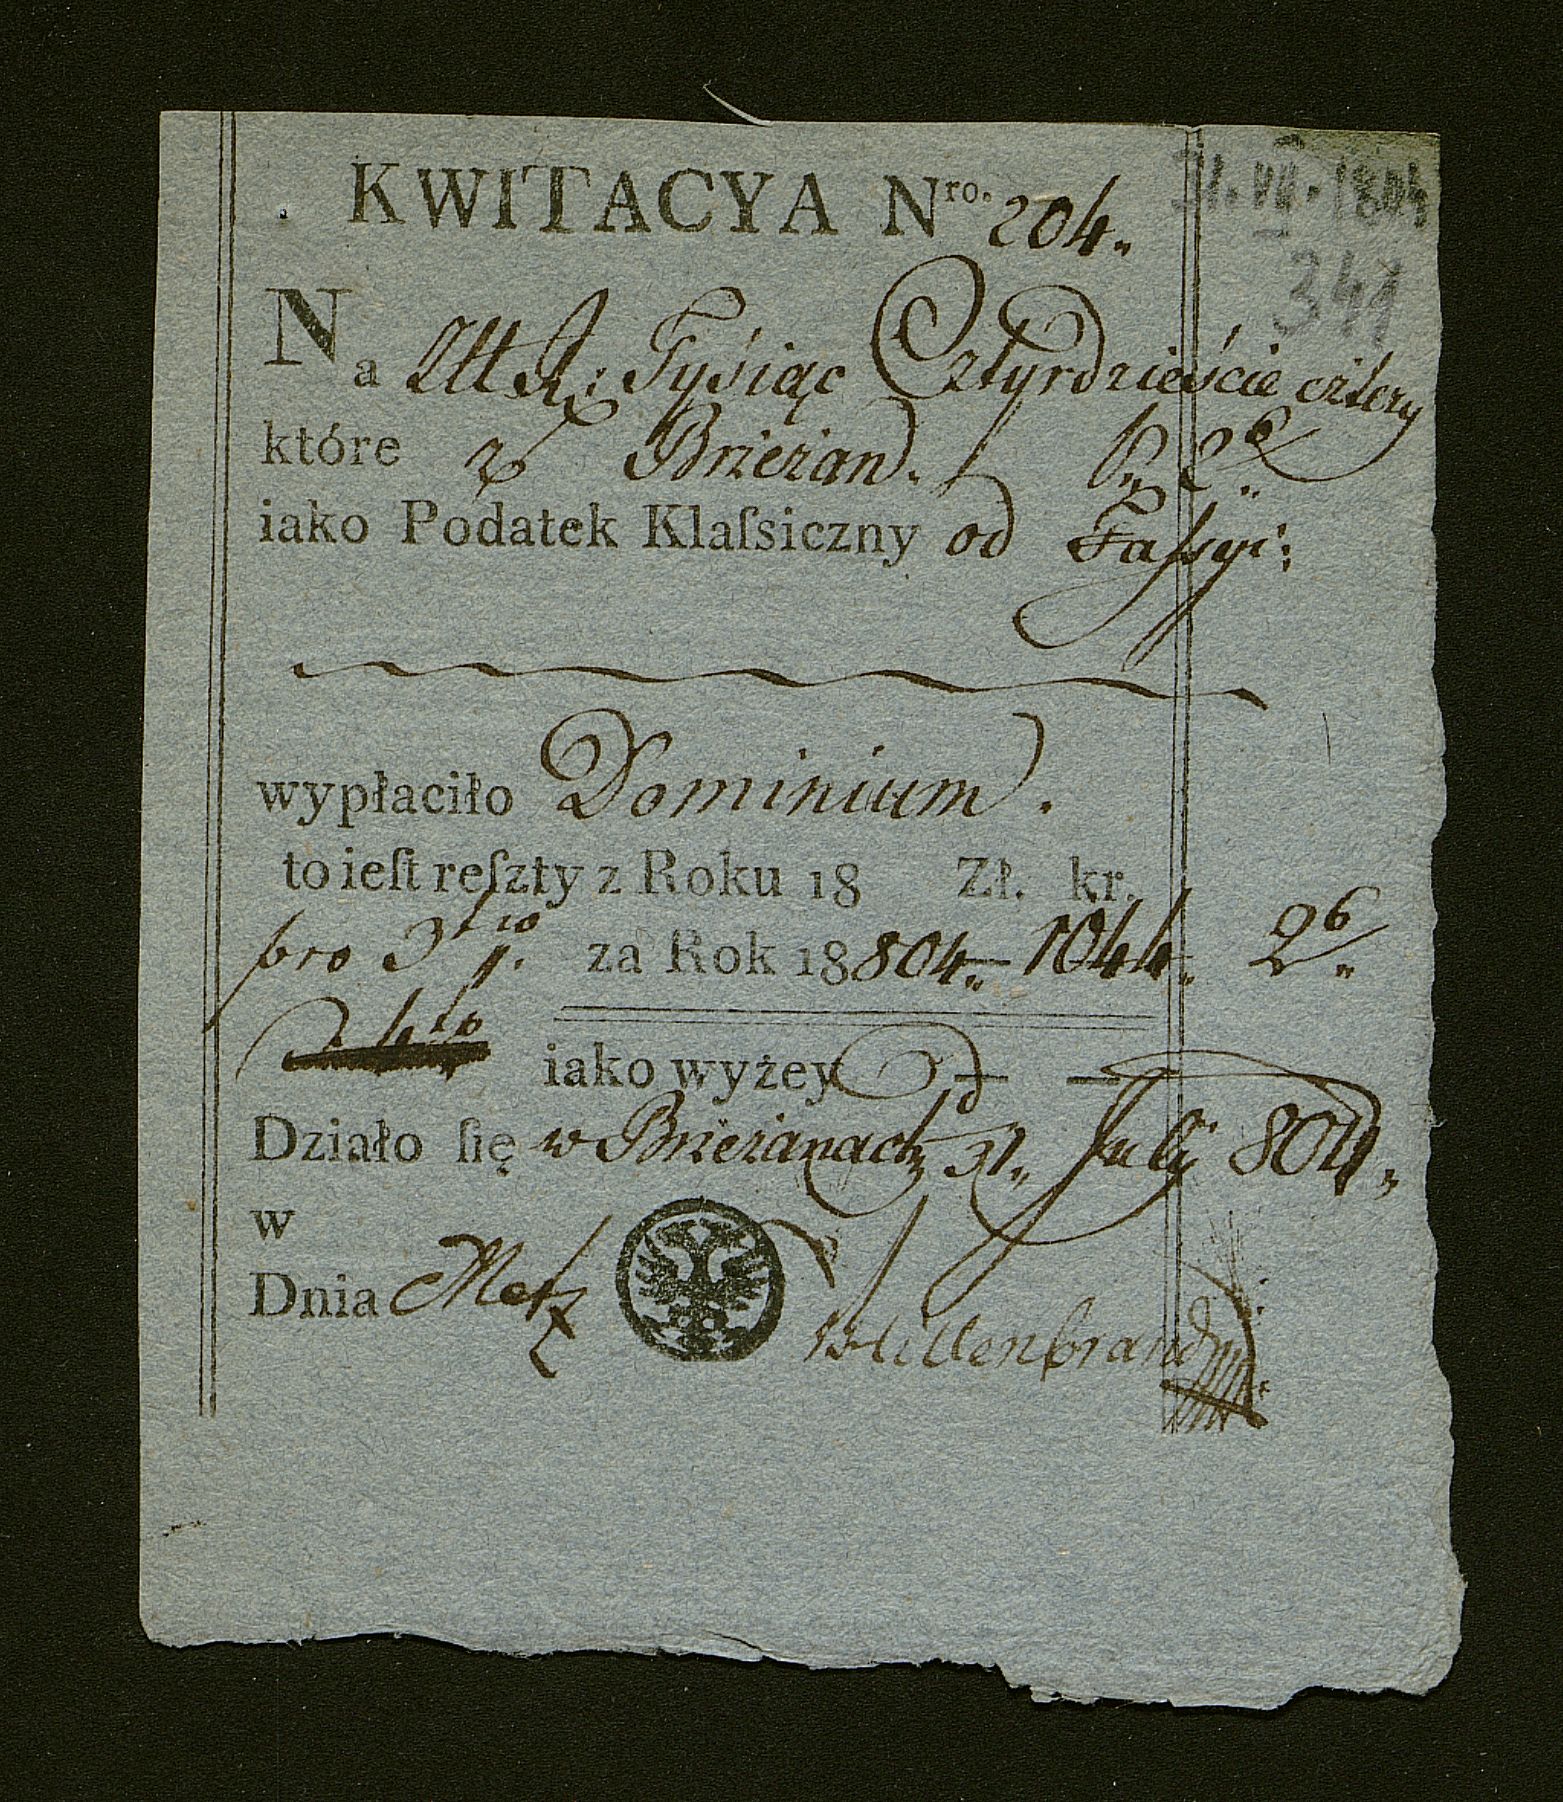 31. VII. 1804
341
KWITACYA Nro. 204.
Na Tysiąc Cztyrdzieście cztery
które z Brzeżan.
iako Podatek Klaſsiczny od Faſsyi:
wypłaciło Dominium.
to ieſt reſzty z Roku 18 Zł. kr.
pro 3tio za Rok 18 804. — 1044. 26
4to
iako wyżey — —
Działo ſię w Brzeżanach 31. July 804.
w
Dnia Metz Hillenbrand